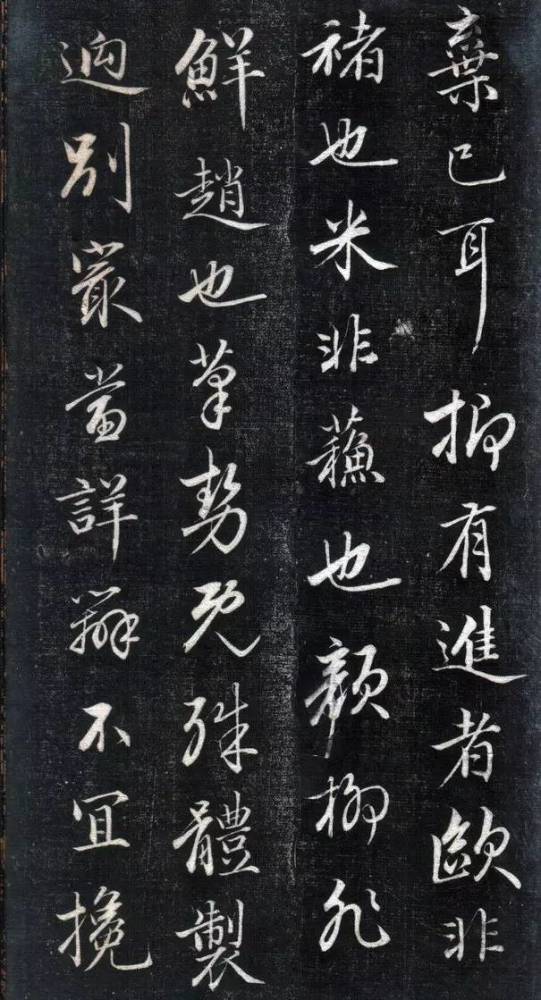 棄已耳抑有進者歐非
褚也米非蘓也顏柳非
鮮趙也筆勢既殊體製
迥別最當詳辯不宜攙